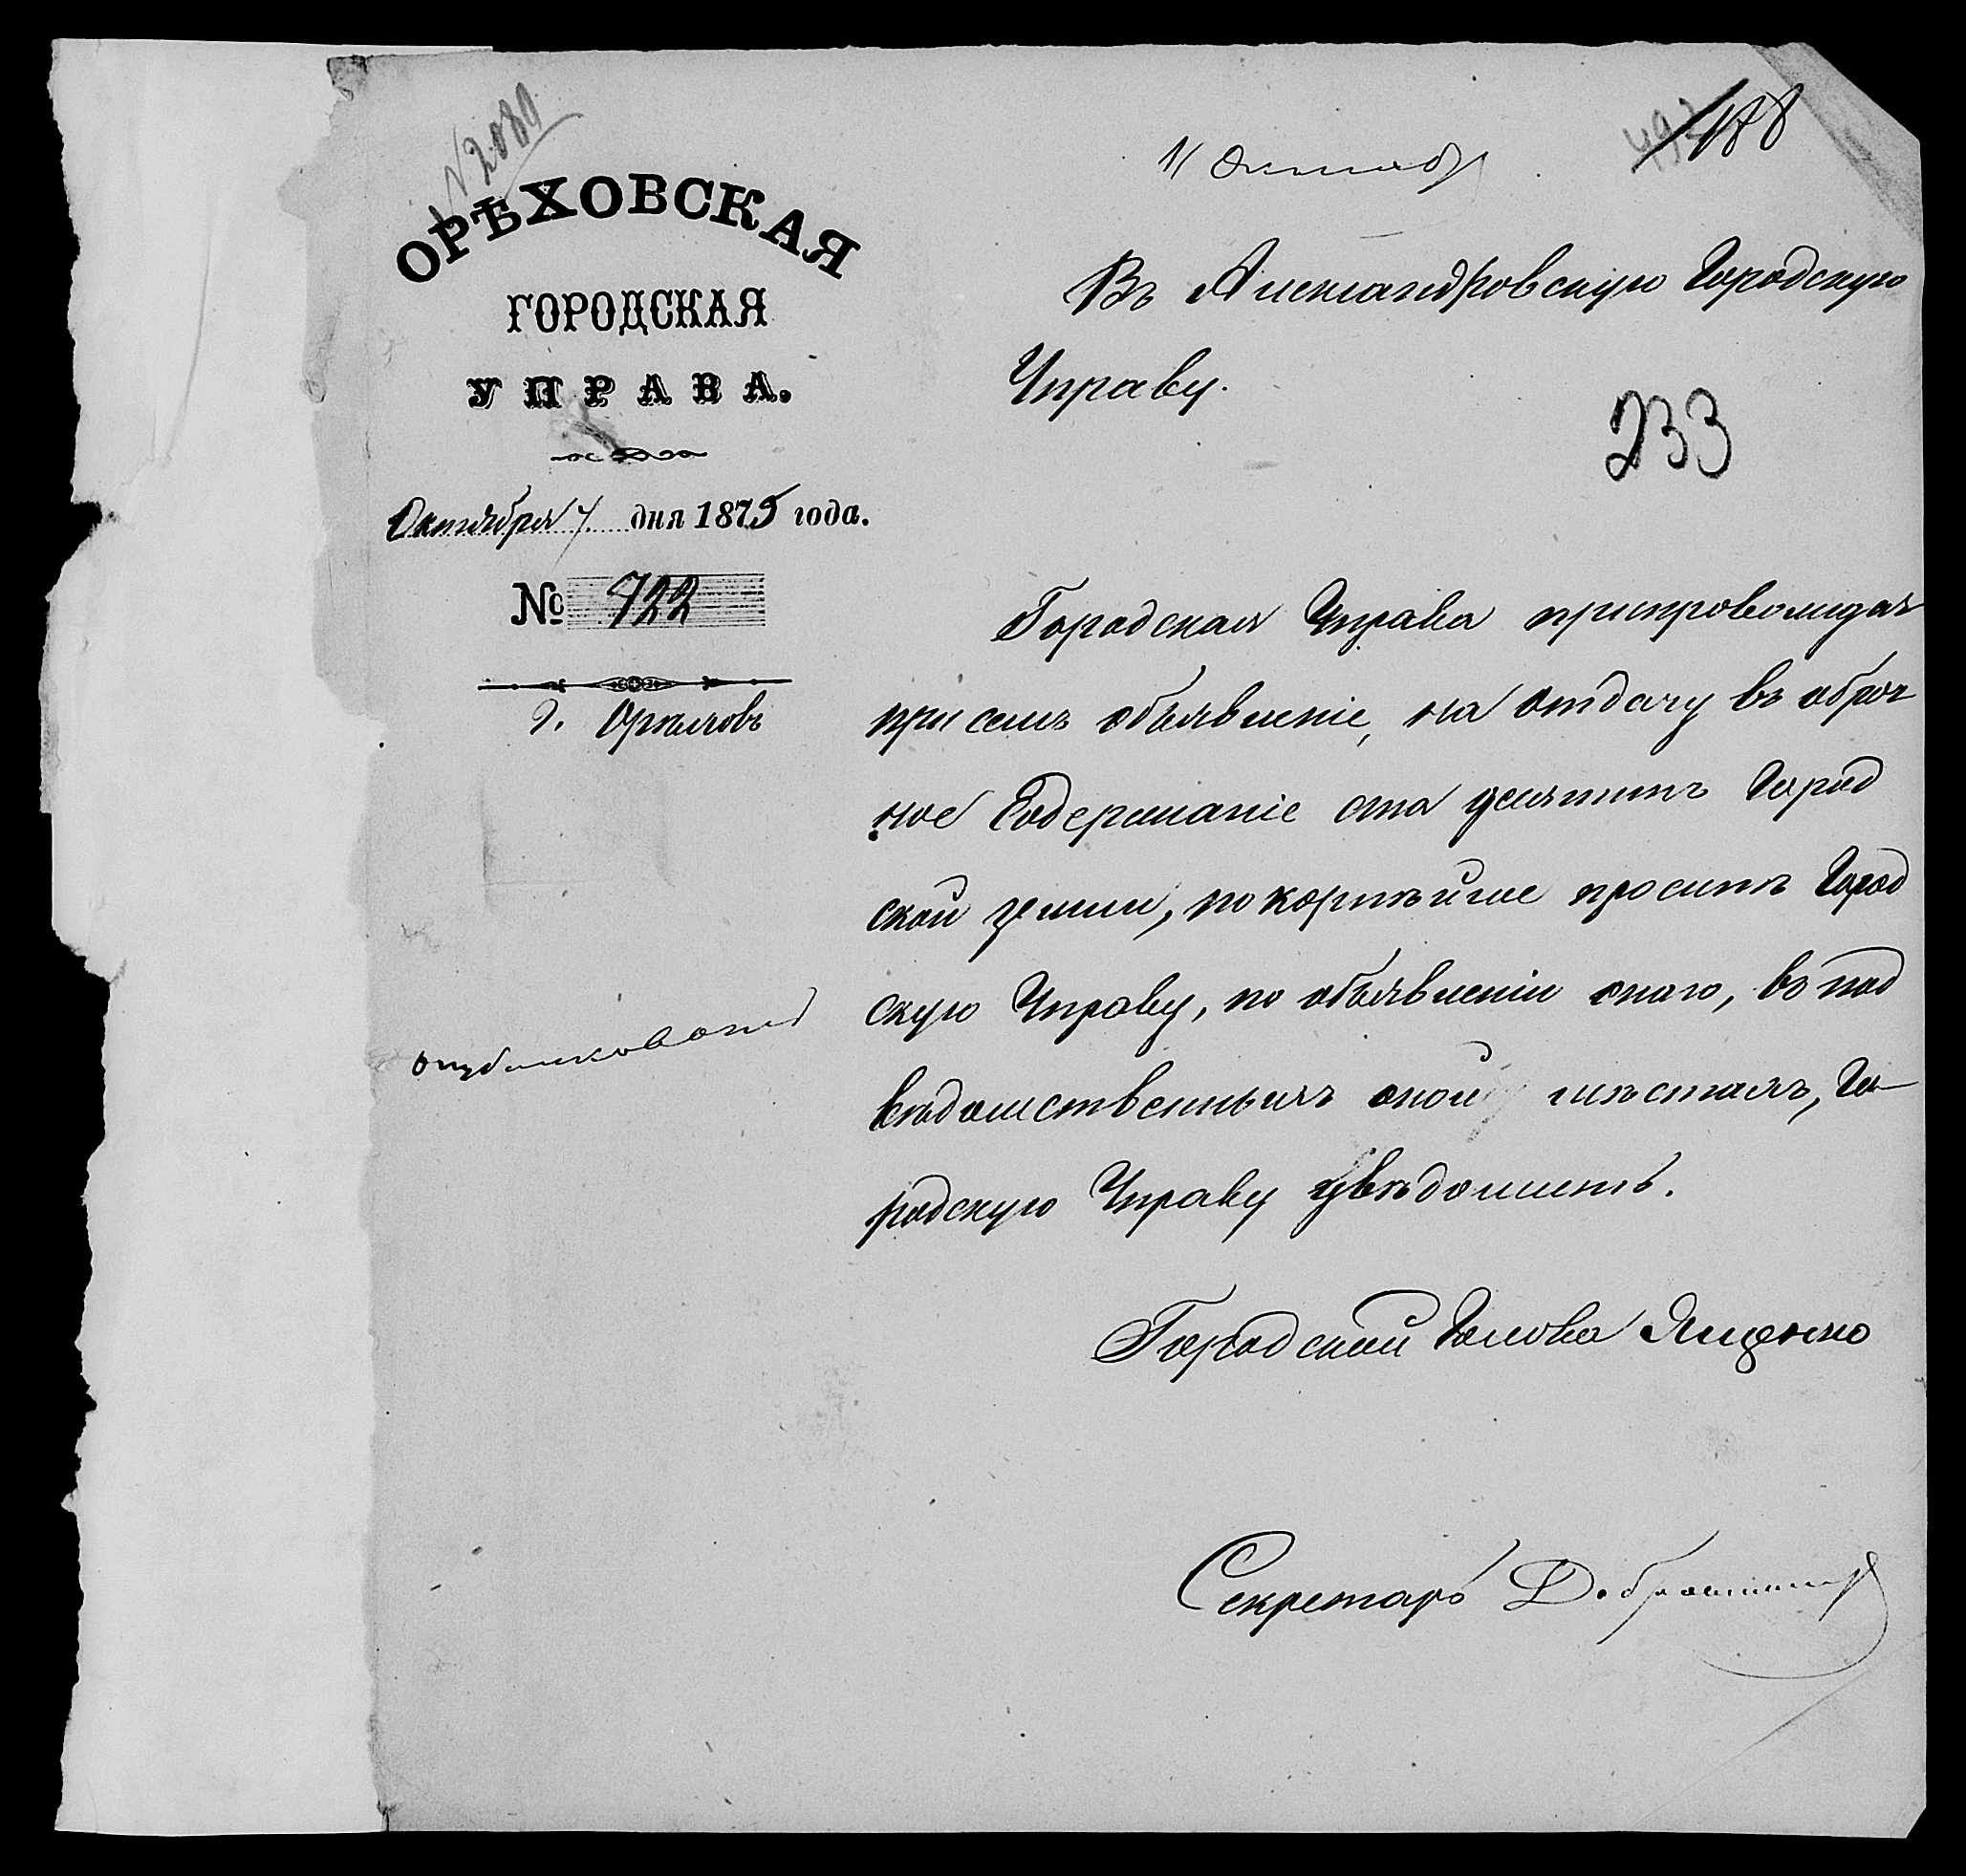 N 2089
ОРѢХОВСКАЯ
ГОРОДСКАЯ
УПРАВА.
Октября 7 дня 1875 года.
№ 722
г. Орѣховъ
опубликовано
11 Октяб
188
Въ Александровскую Городскую
Управу.
233
Городская Управа припровождая
при семъ объявленіе, на отдачу въ оброч
ное Содержаніе ста десятинъ Город
ской земли, покорнѣйше проситъ Город
скую Управу, по объявленіи онаго, въ под
вѣдомственныхъ оной мѣстахъ, Го-
родскую Управу увѣдомить.
Городской Голова Ященко
Секретарь